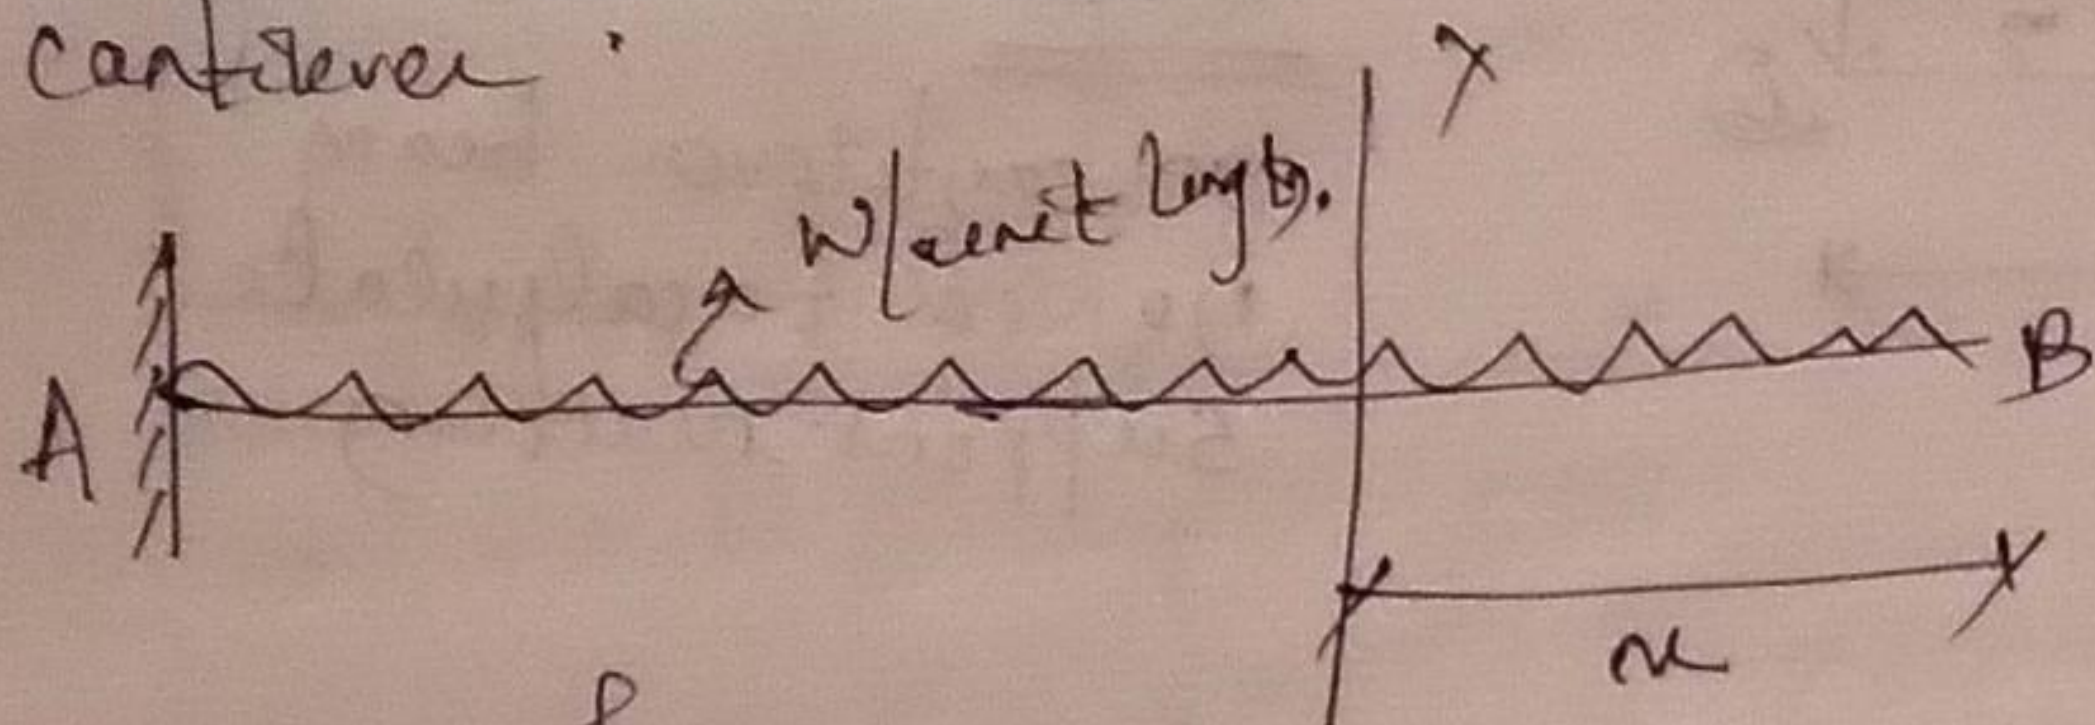 Cantilever
X
W/unit length.
A
B
x
l